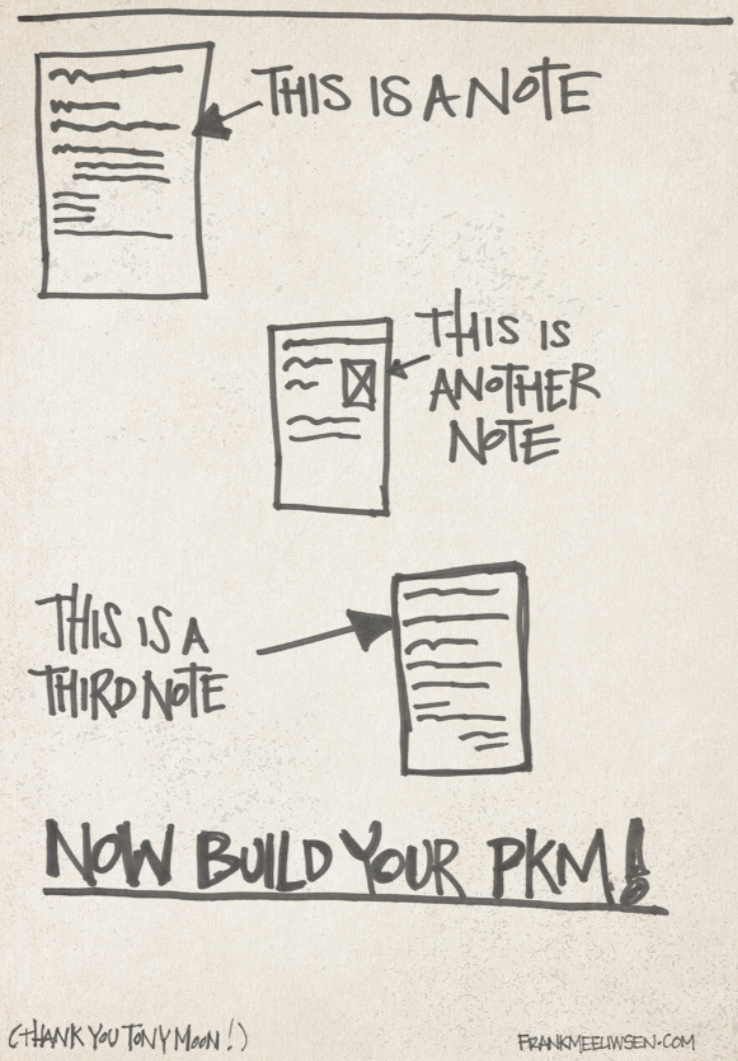 THIS IS A NOTE
THIS IS
ANOTHER
NOTE
THIS IS A
THIRD NOTE
NOW BUILD YOUR PKM!
(THANK YOU TONY MOON!)
FRANKMEEUWSEN.COM